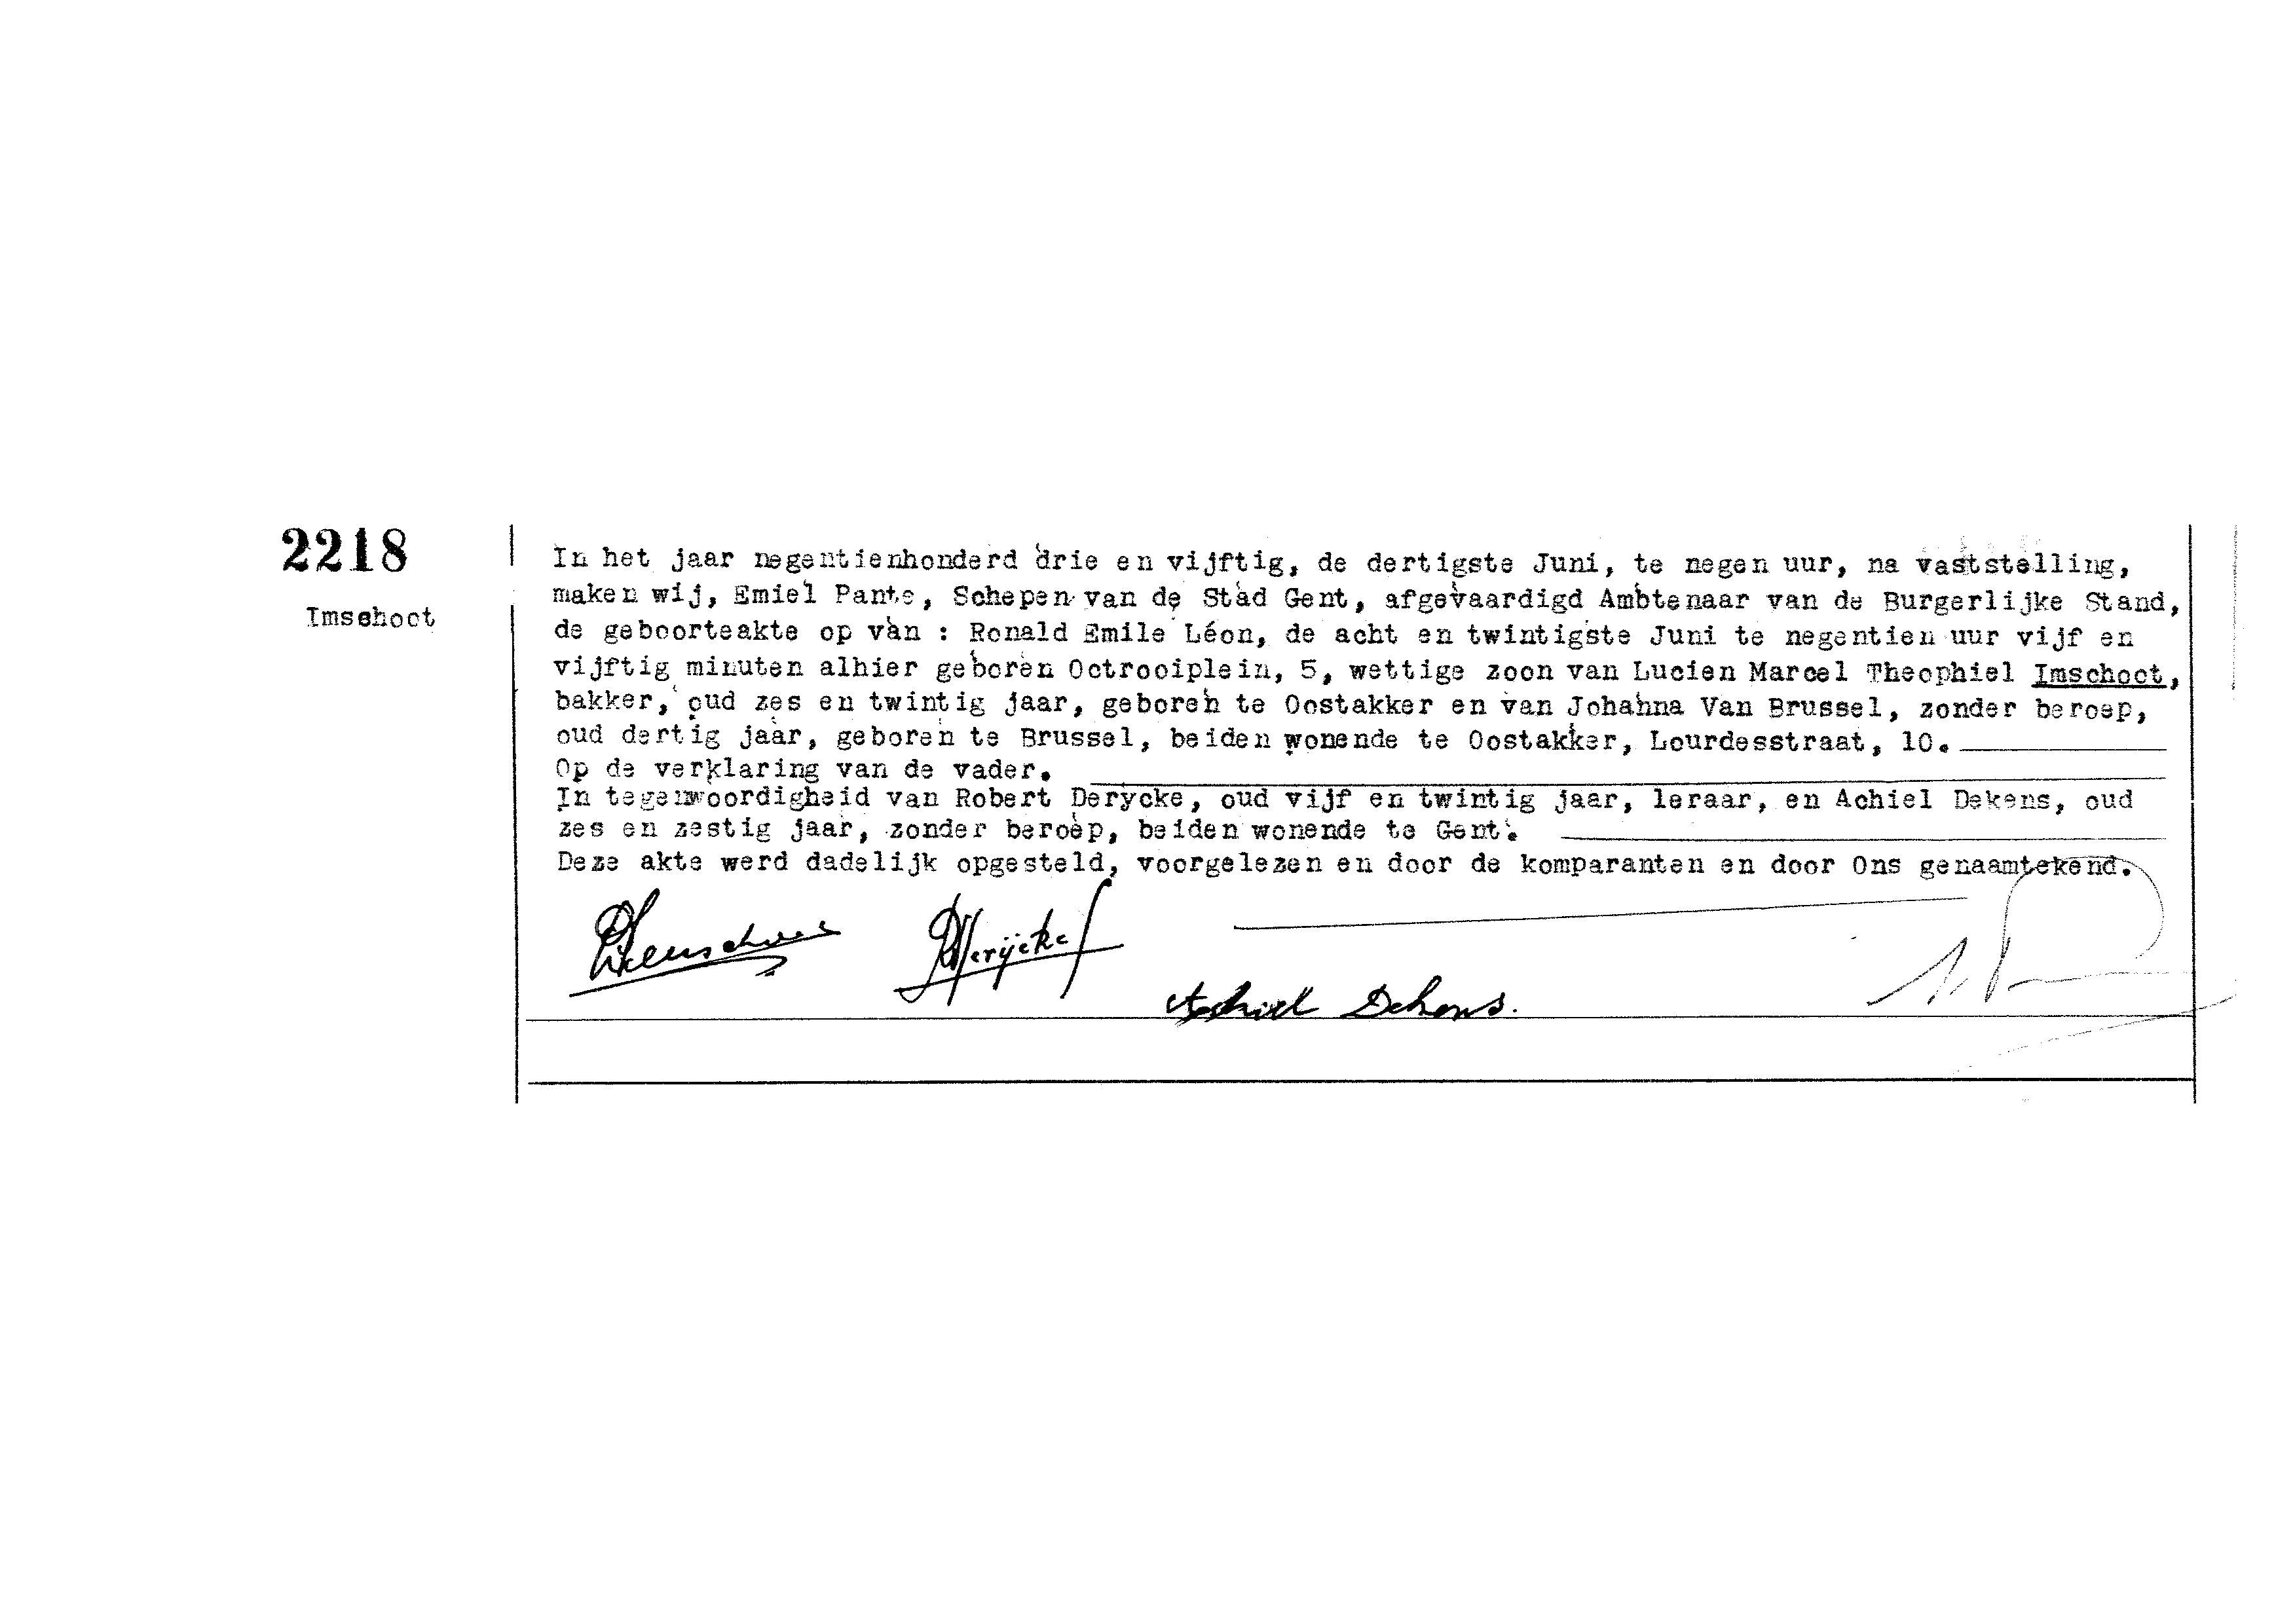 2218
Imschoot
In het jaar negentienhonderd drie en vijftig, de dertigste Juni, te negen uur, na vaststelling,
maken wij, Emiel Pants, Schepen van de Stad Gent, afgevaardigd Ambtenaar van de Burgerlijke Stand,
de geboorteakte op van : Ronald Emile Léon, de acht en twintigste Juni te negentien uur vijf en
vijftig minuten alhier geboren Octrooiplein, 5, wettige zoon van Lucien Marcel Theophiel Imschoot,
bakker, oud zes en twintig jaar, geboren te Oostakker en van Johanna Van Brussel, zonder beroep,
oud dertig jaar, geboren te Brussel, beiden wonende te Oostakker, Lourdesstraat, 10.
Op de verklaring van de vader.
In tegenwoordigheid van Robert Derycke, oud vijf en twintig jaar, leraar, en Achiel Dekens, oud
zes en zestig jaar, zonder beroep, beiden wonende te Gent.
Deze akte werd dadelijk opgesteld, voorgelezen en door de komparanten en door Ons genaamtekend.
Achiel Dekens.